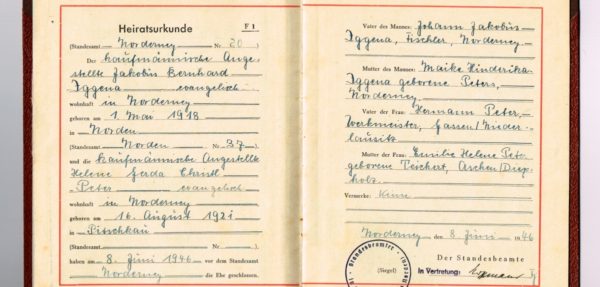 Heiratsurkunde F 1
(Standesamt Norderney Nr. 20)
Der kaufmännische Ange-
stellte Jakobus Bernhard
Iggena evangelisch
wohnhaft in Norderney
geboren am 1. Mai 1918
in Norden
(Standesamt Norden Nr. 37)
und die kaufmännische Angestellte
Helene Gerda Christl
Peter evangelisch
wohnhaft in Norderney
geboren am 16. August 1921
in
(Standesamt Nr. )
haben am 8. Juni 1946 vor dem Standesamt
Norderney die Ehe geschlossen.
Vater des Mannes: Johann Jakobus
Iggena, Tischler, Norderney
Mutter des Mannes: Maike Hinderika
Iggena geborene Peters,
Norderney
Vater der Frau: Hermann Peter,
Werkmeister, Gassen/Nieder-
lausitz
Mutter der Frau: Emilie Helene Peter
geborene Teichert, Aschen/Diep-
holz
Vermerke: Keine
Norderney den 8. Juni 1946
Der Standesbeamte
(Siegel) In Vertretung:
Standesbeamte